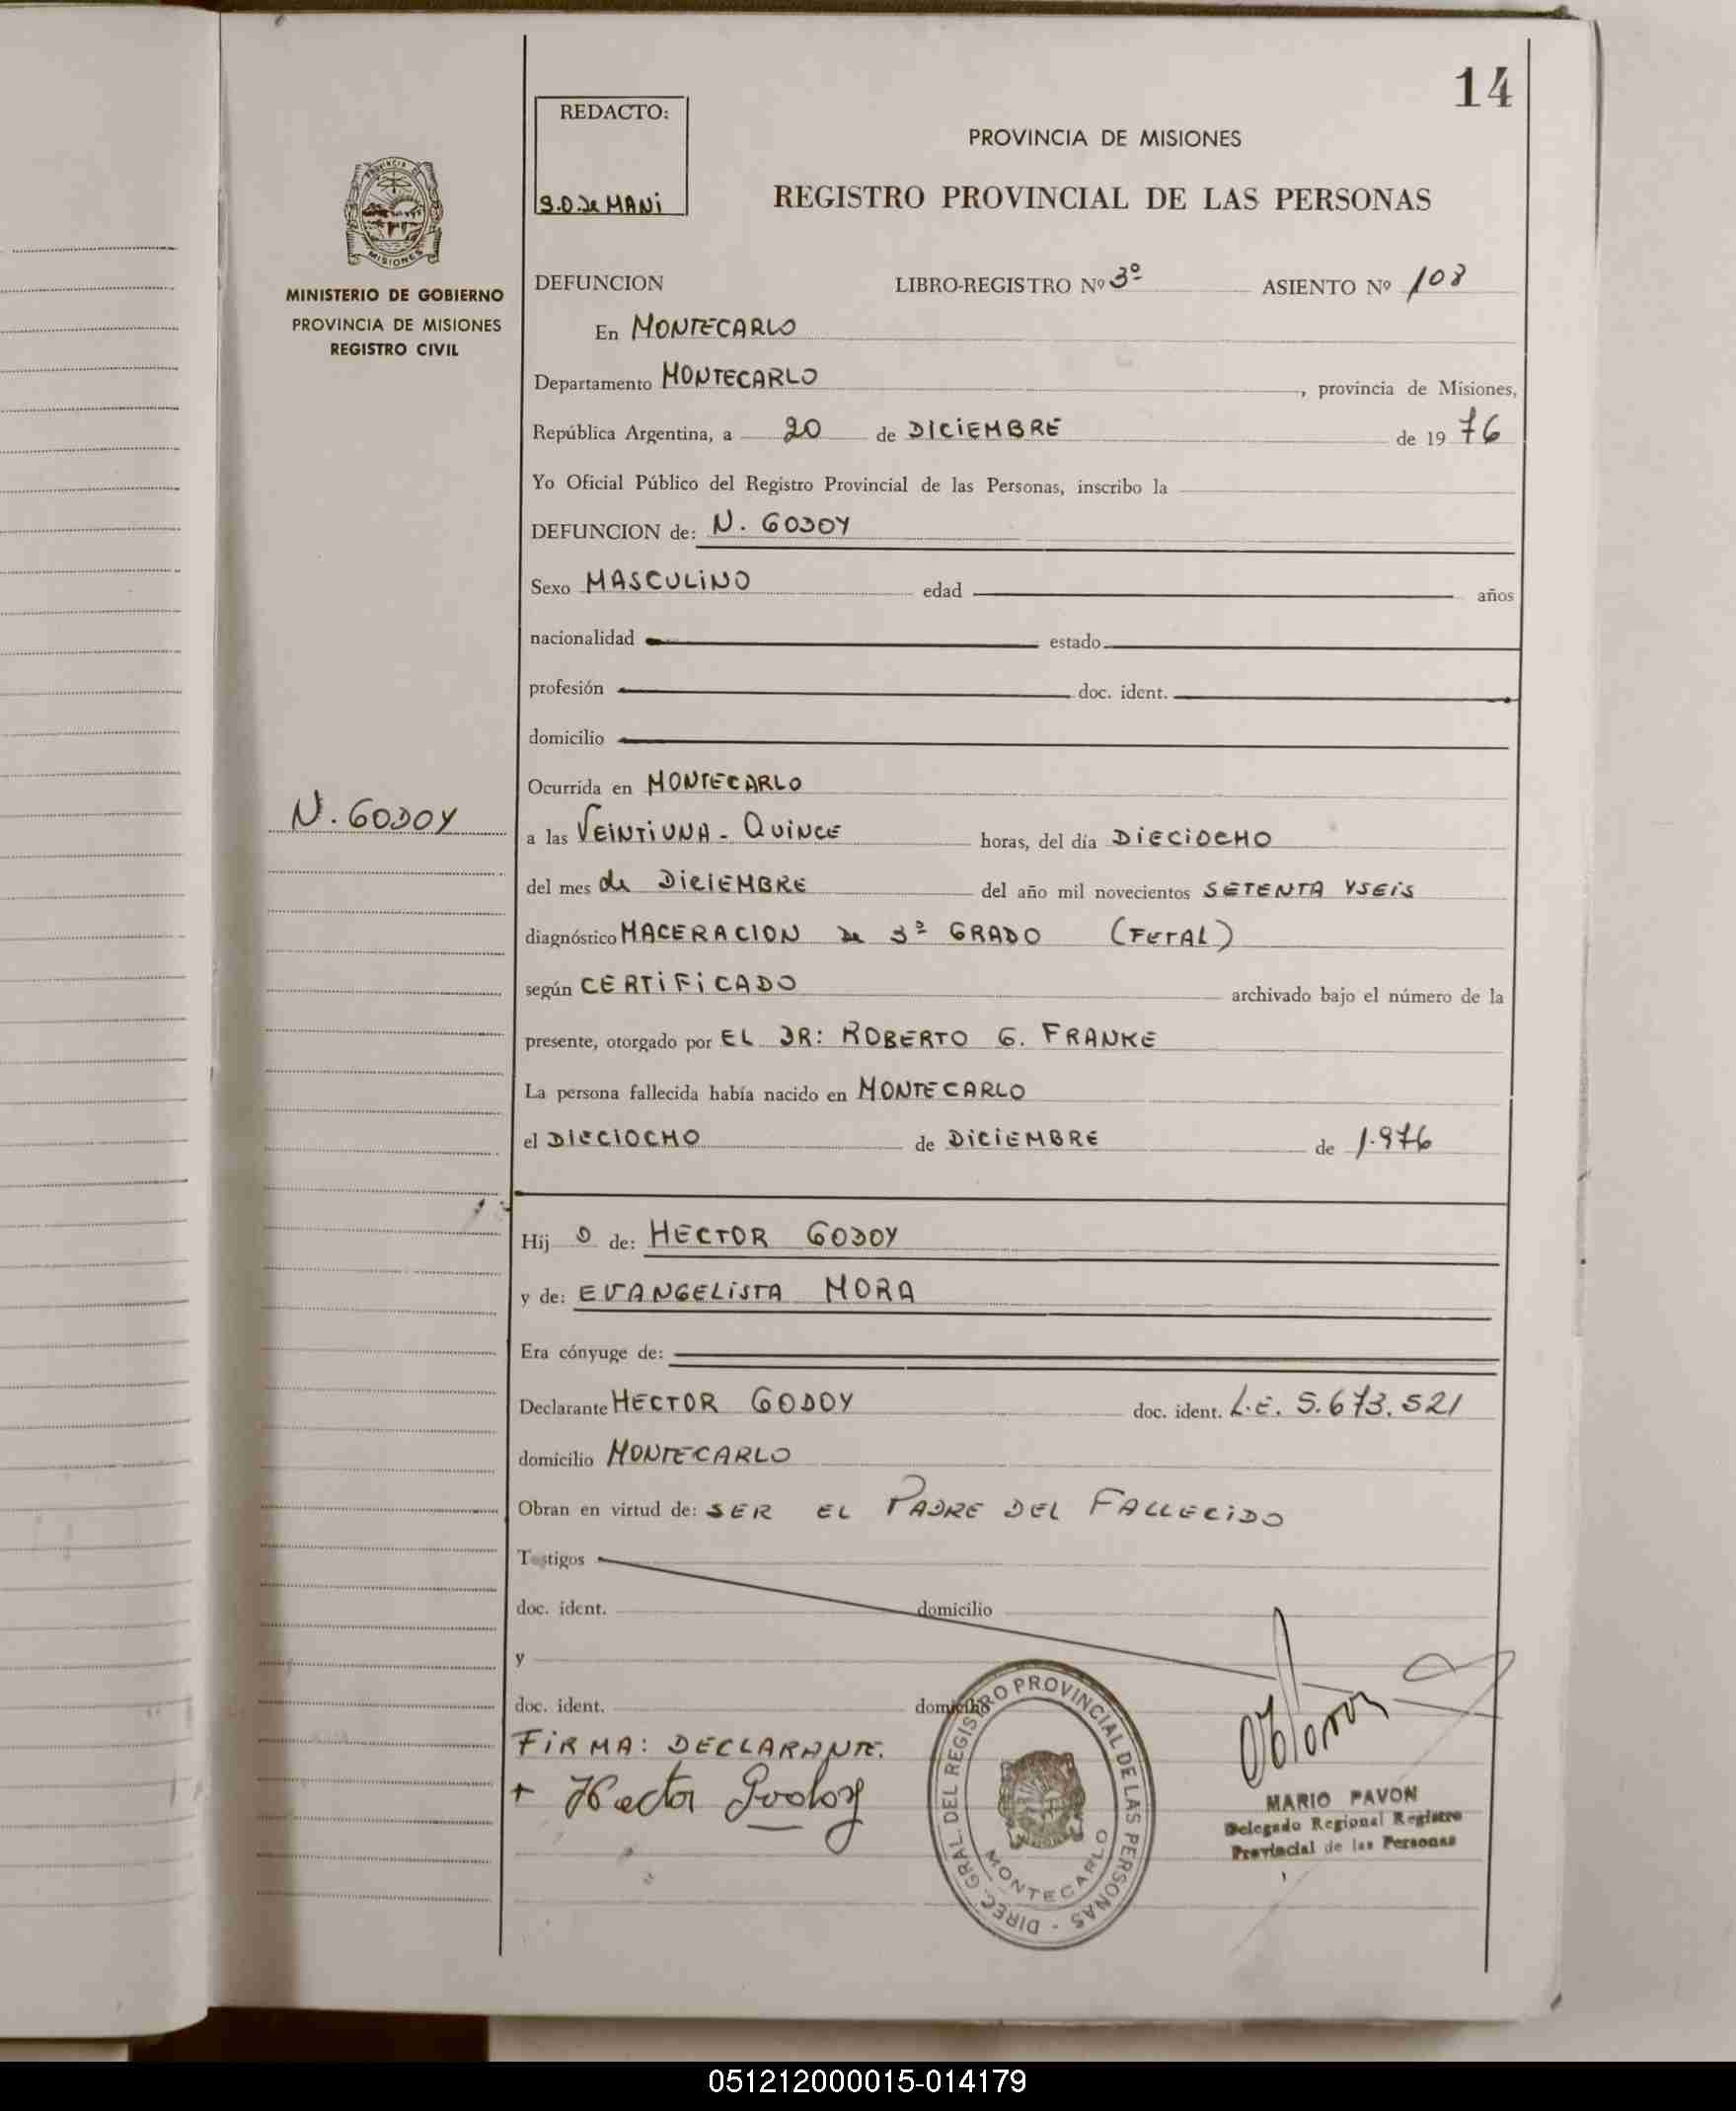 14
REDACTO:
S.D. de MANi
PROVINCIA DE MISIONES
REGISTRO PROVINCIAL DE LAS PERSONAS
PROVINCIA
MISIONES
MINISTERIO DE GOBIERNO
PROVINCIA DE MISIONES
REGISTRO CIVIL
DEFUNCION LIBRO-REGISTRO Nº 3º ASIENTO Nº 108
En MONTECARLO
Departamento MONTECARLO, provincia de Misiones,
República Argentina, a 20 de DICIEMBRE de 1976
Yo Oficial Público del Registro Provincial de las Personas, inscribo la
DEFUNCION de: N. GODOY
Sexo MASCULINO edad años
nacionalidad estado
profesión doc. ident.
domicilio
Ocurrida en MONTECARLO
N. GODOY
a las VEINTIUNA - QUINCE horas, del día DIECIOCHO
del mes de DICIEMBRE del año mil novecientos SETENTA Y SEIS
diagnóstico MACERACION de 3º GRADO (FETAL)
según CERTIFICADO archivado bajo el número de la
presente, otorgado por EL DR: ROBERTO G. FRANKE
La persona fallecida había nacido en MONTECARLO
el DIECIOCHO de DICIEMBRE de 1.976
Hijo de: HECTOR GODOY
y de: EVANGELISTA MORA
Era cónyuge de:
Declarante HECTOR GODOY doc. ident. L.E. 5.673.521
domicilio MONTECARLO
Obran en virtud de: SER EL PADRE DEL FALLECIDO
Testigos
doc. ident. domicilio
y
doc. ident. domicilio
FIRMA: DECLARANTE.
+ Hector Godoy
DIREC. GRAL. DEL REGISTRO PROVINCIAL DE LAS PERSONAS -
MONTECARLO
MARIO PAVON
Delegado Regional Registro
Provincial de las Personas
051212000015-014179